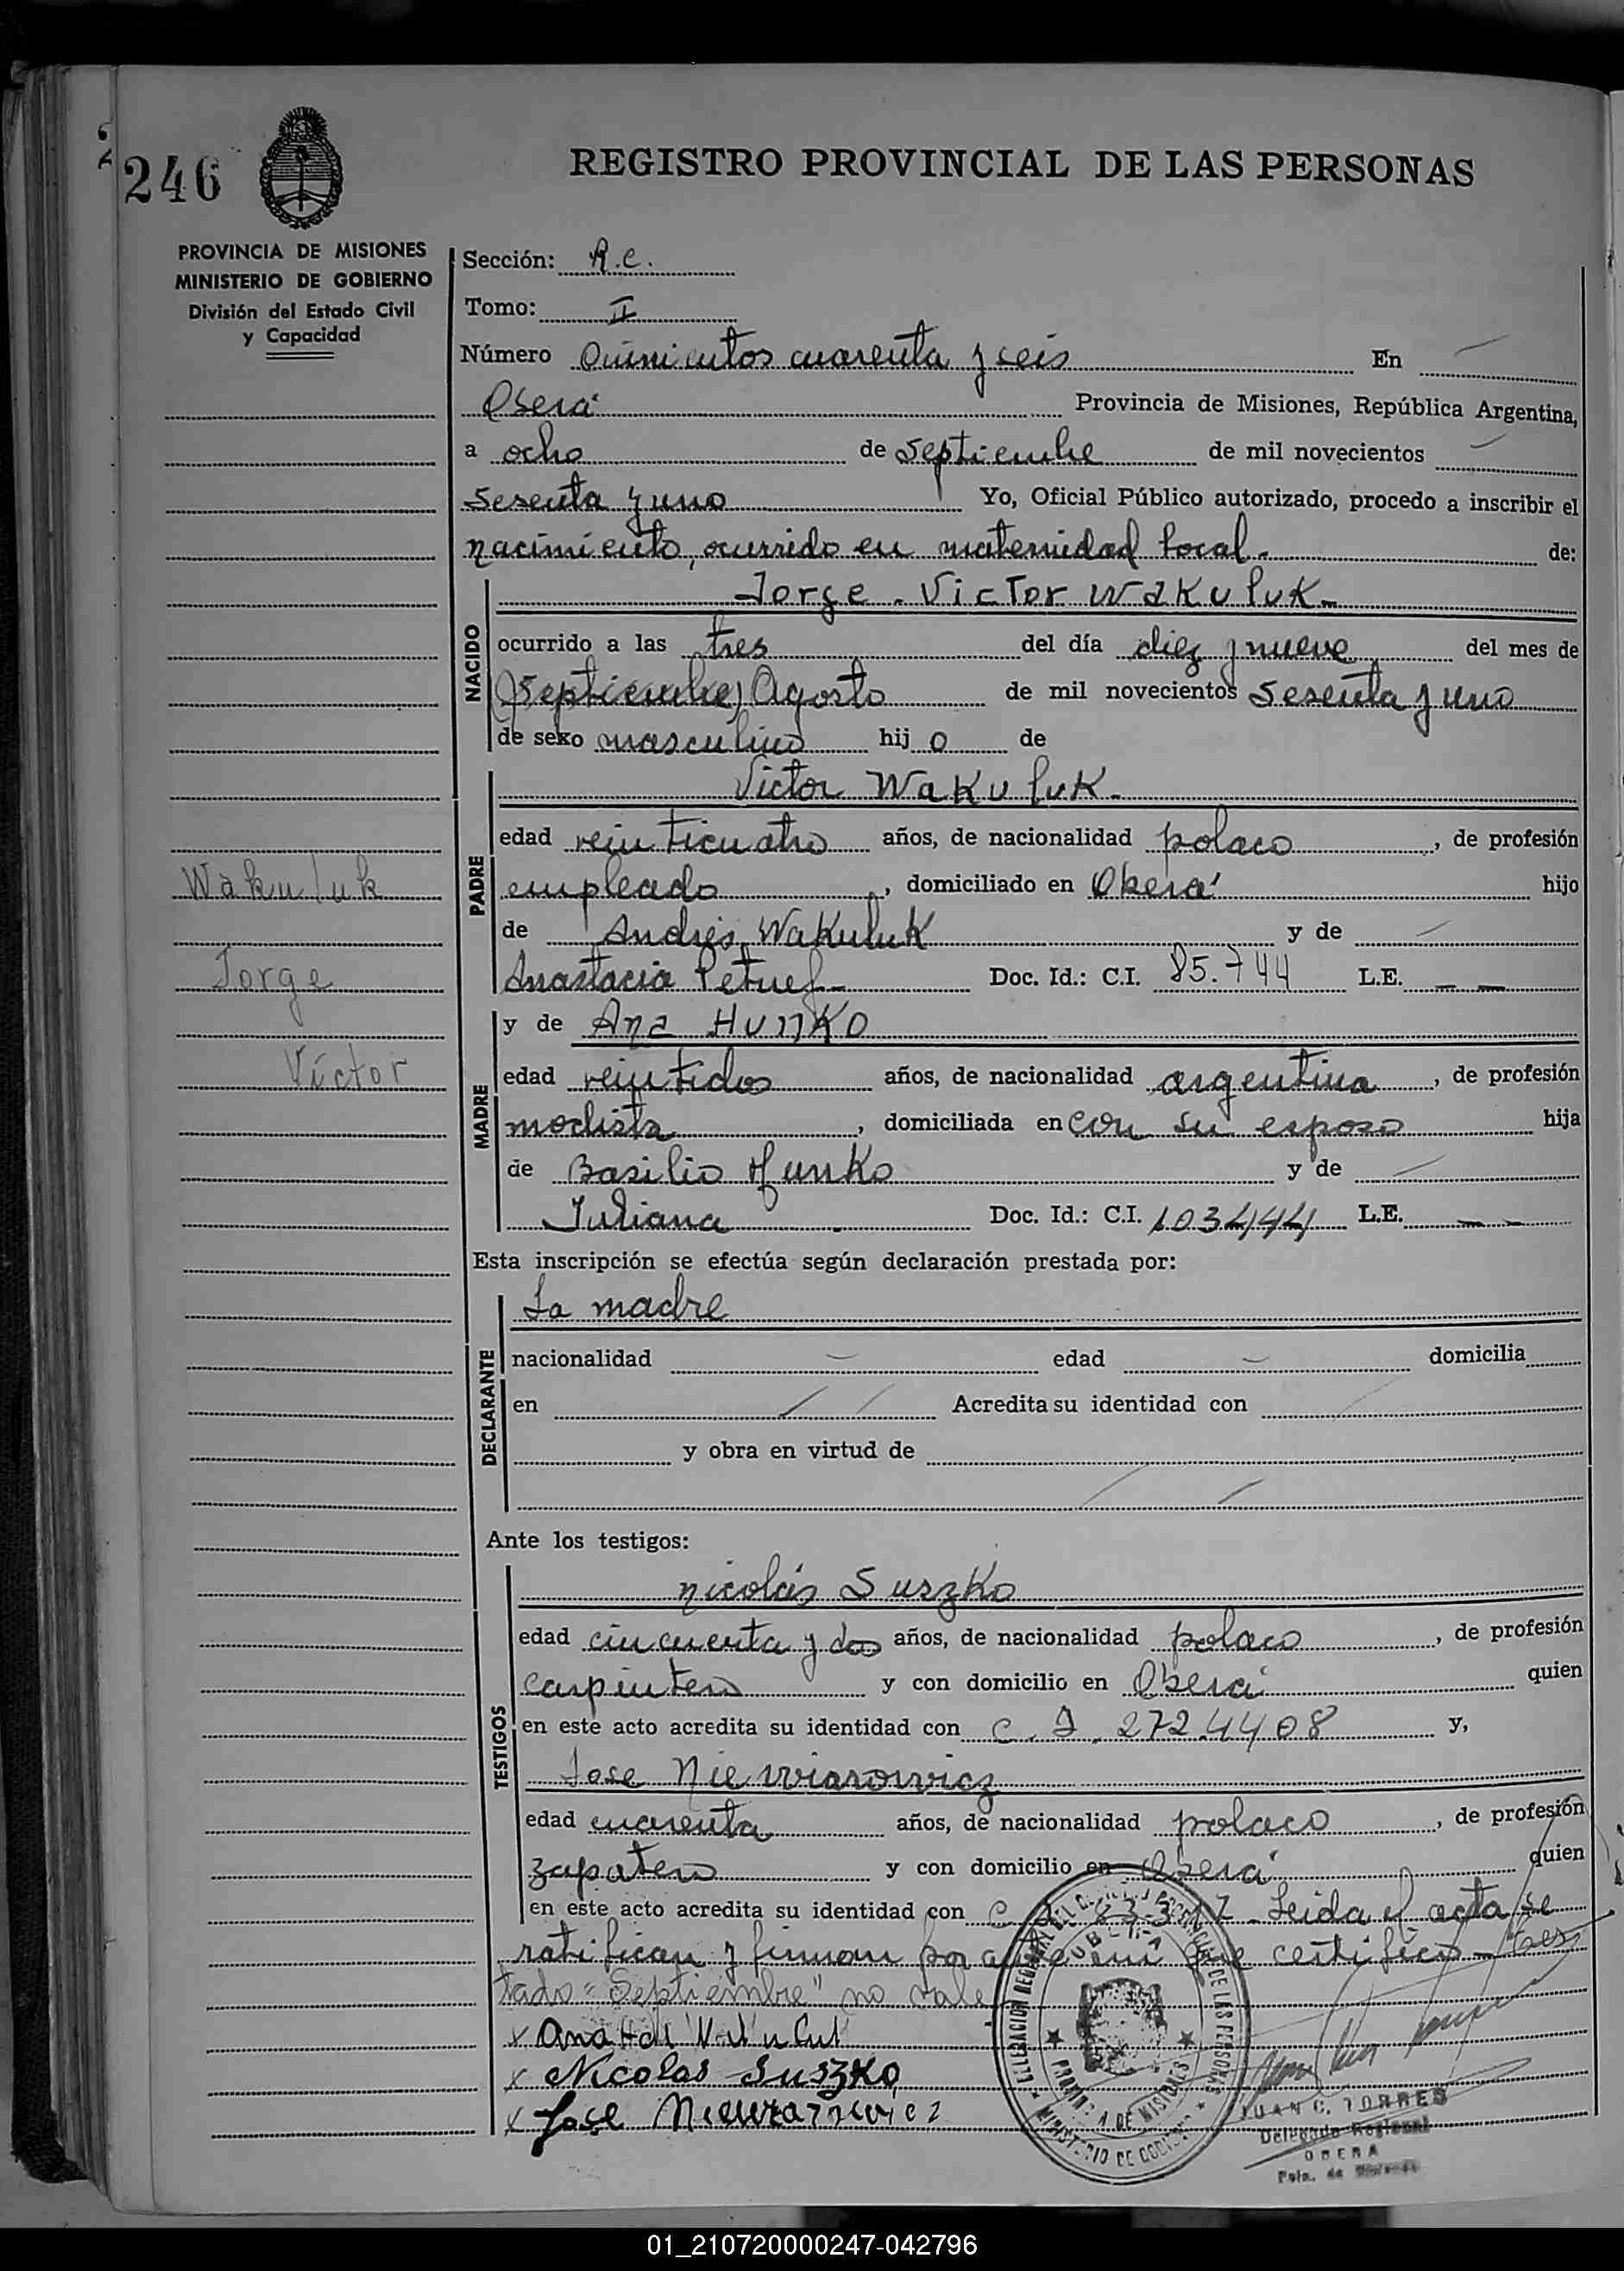 246
REGISTRO PROVINCIAL DE LAS PERSONAS
PROVINCIA DE MISIONES
MINISTERIO DE GOBIERNO
División del Estado Civil
y Capacidad
Sección: R.C.
Tomo: II
Número Quinientos cuarenta y seis En
Oberá Provincia de Misiones, República Argentina,
a ocho de septiembre de mil novecientos
sesenta y uno Yo, Oficial Público autorizado, procedo a inscribir el
nacimiento, ocurrido en maternidad local.- de:
NACIDO
Jorge Victor Wakuluk.-
ocurrido a las tres del día diez y nueve del mes de
(Septiembre) Agosto de mil novecientos sesenta y uno
de sexo masculino hijo de
PADRE
Victor Wakuluk.-
edad veinticuatro años, de nacionalidad polaco, de profesión
empleado, domiciliado en Oberá hijo
de Andrés Wakuluk y de
Anastacia Doc. Id.: C.I. 85.744 L.E. — —
Wakuluk
Jorge
Víctor
MADRE
y de Ana Hunko
edad veintidos años, de nacionalidad argentina, de profesión
modista, domiciliada en con su esposo hija
de Basilio Hunko y de
Juliana Doc. Id.: C.I. 103444 L.E. — —
Esta inscripción se efectúa según declaración prestada por:
DECLARANTE
La madre
nacionalidad — edad — domicilia
en Acredita su identidad con
y obra en virtud de
Ante los testigos:
TESTIGOS
Nicolás Suszko
edad cincuenta y dos años, de nacionalidad polaco, de profesión
carpintero y con domicilio en Oberá quien
en este acto acredita su identidad con C.I. 2724408 y,
Jose Niewiarowicz
edad cuarenta años, de nacionalidad polaco, de profesión
zapatero y con domicilio en Oberá quien
en este acto acredita su identidad con C. Leida el acta se
ratifican y firman por ante mi que certifico - Tes
tado "Septiembre" no vale
x Ana H de
x Nicolas Suszko
x Jose Niewiarowicz
PROVINCIA DE MISIONES
MINISTERIO DE GOBIERNO
JUAN C. TORRES
Delegado Regional
OBERA
Pcia. de Misiones
01_210720000247-042796